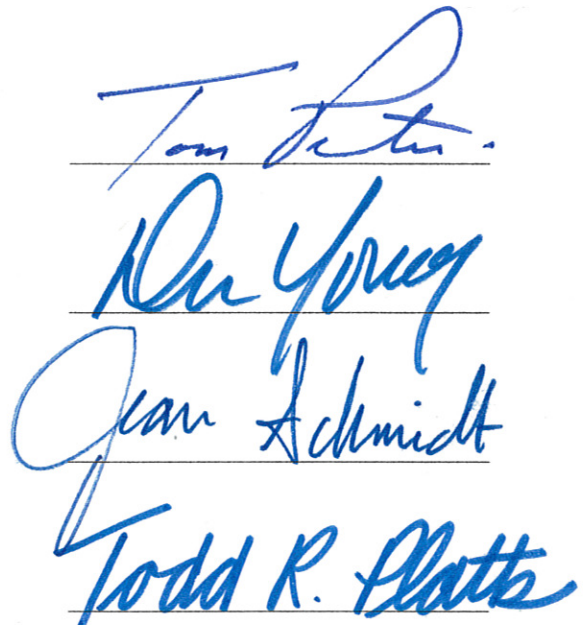 Tom Petri
Don Young
Jean Schmidt
Todd R. Platts